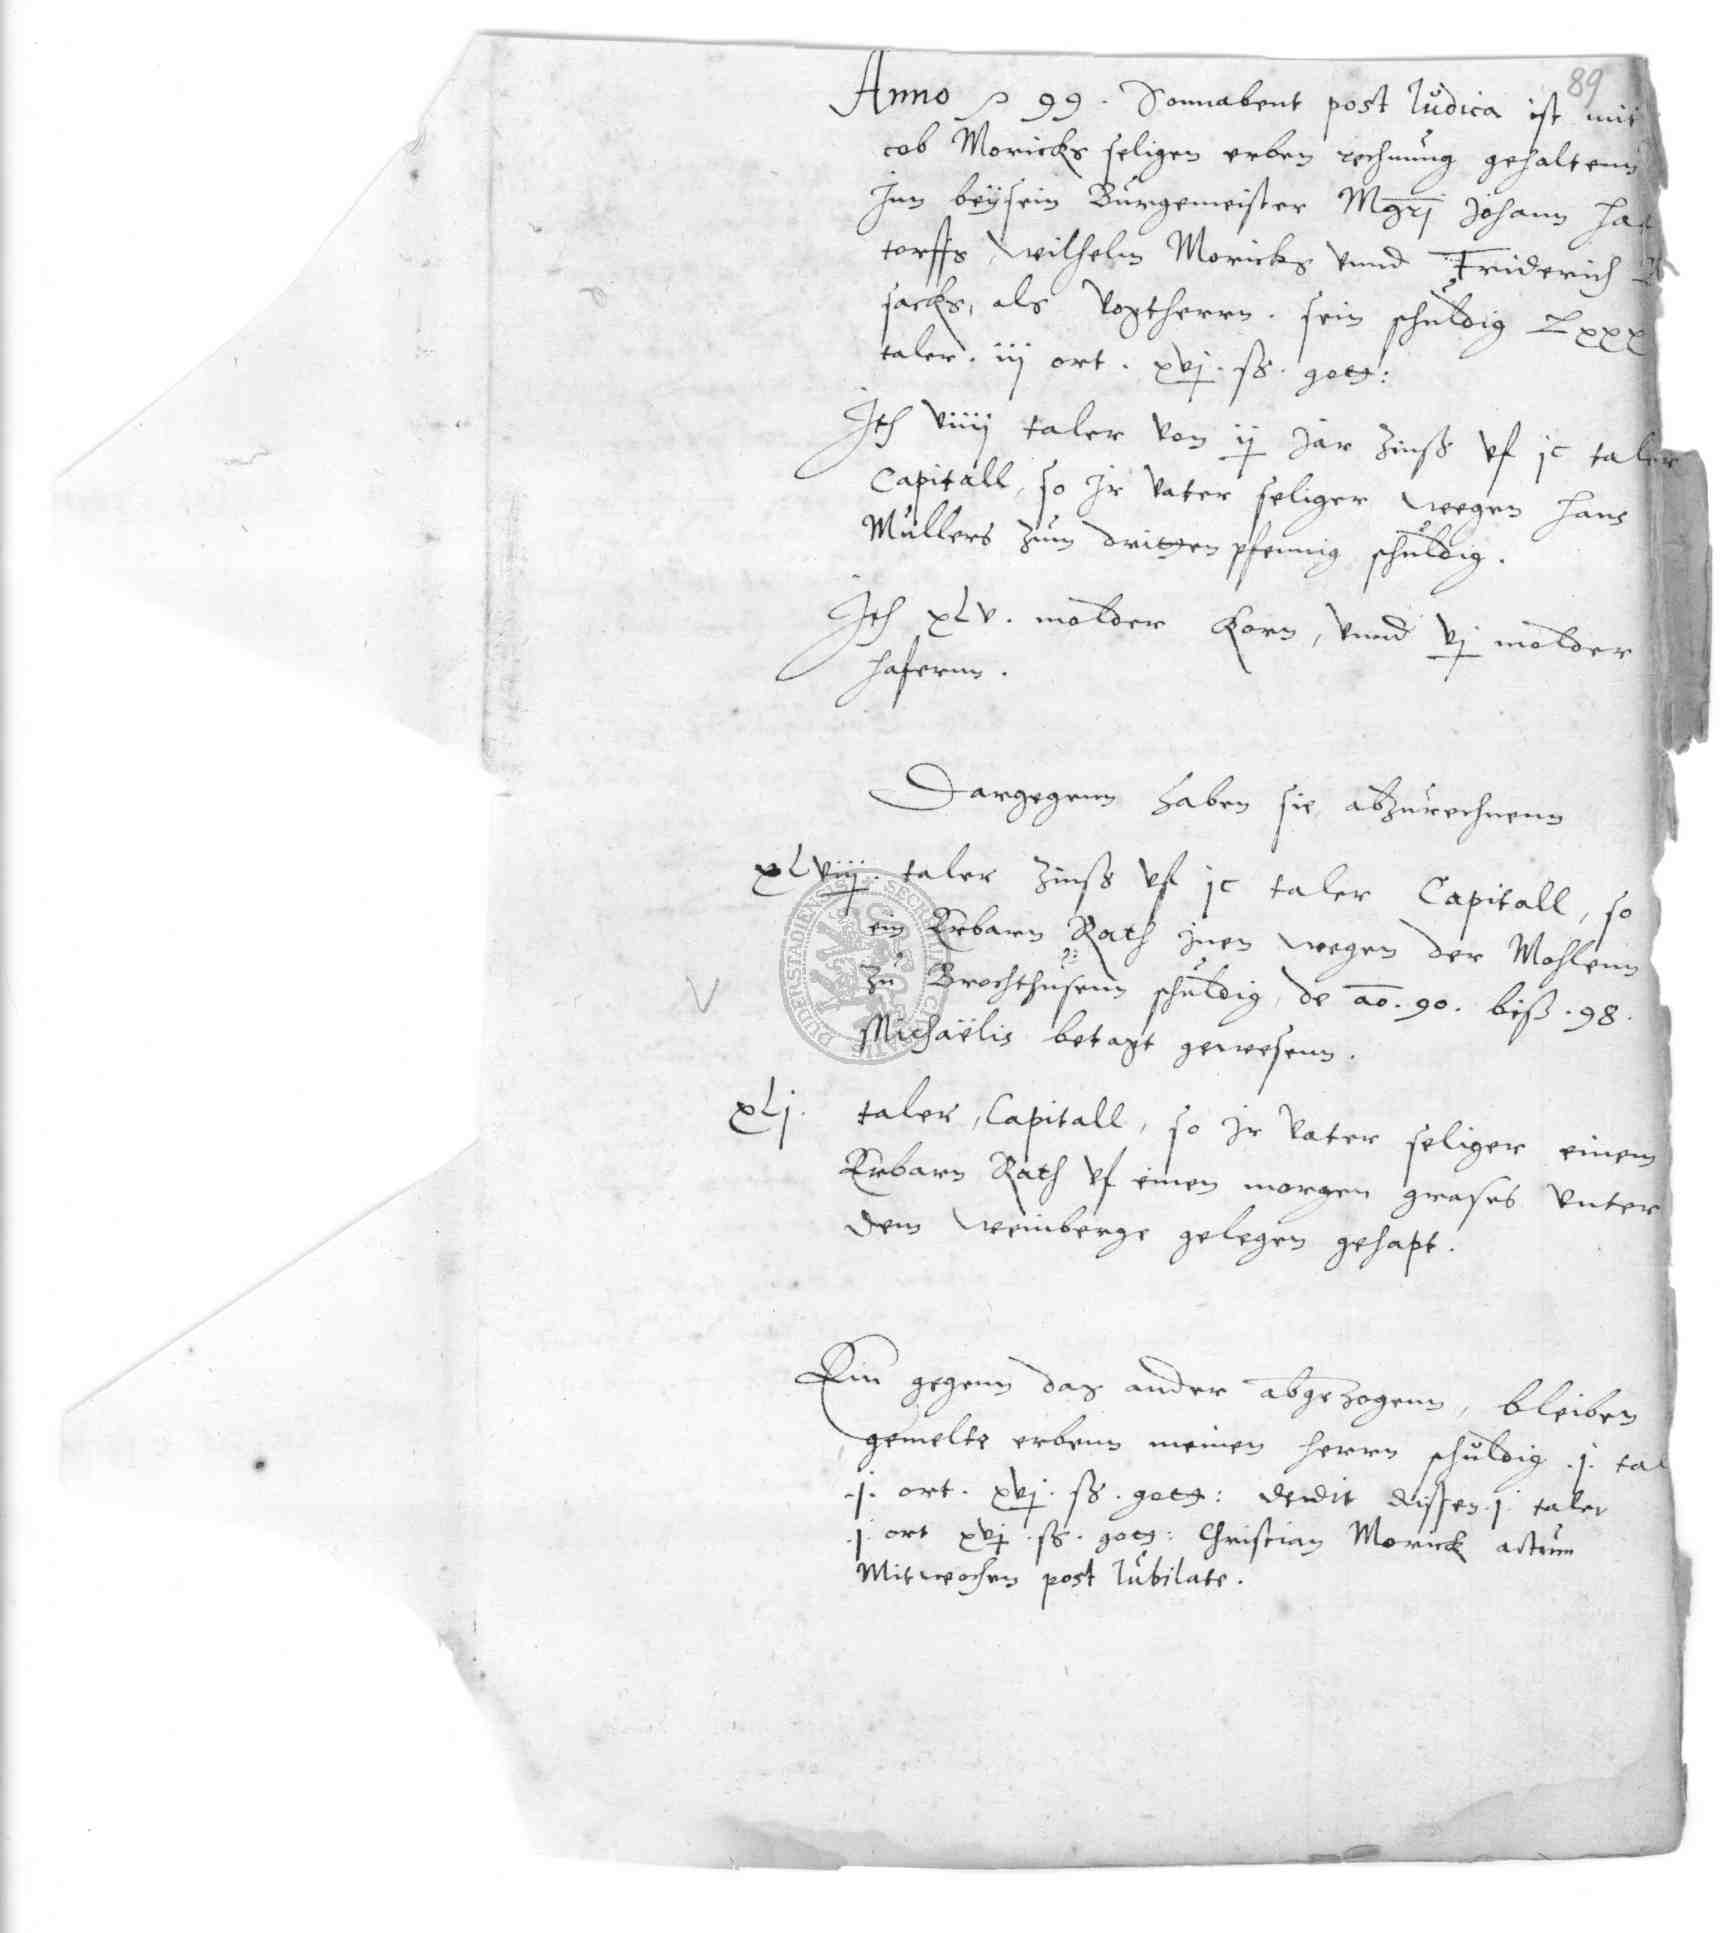 89
Anno 99. Sonnabent post Iudica ist mit
cob Moricks seligen erben rechnung gehaltenn
Inn beÿsein Burgemeister Mgri Johann Hat
torffs, wilhelm Moricks vnnd Friderich
sacks, als Vogtherrn. sein schuldig Lxxx
taler. iij ort. xvj. ß. gotg:
Ite viiij taler von ij Jar Zinß vf jc taler
Capitall, so Jr Vater seliger wegen Hans
Mullers zum dritten pfennig schuldig.
Ite xLv. molder Korn, vnnd vj molder
Hafernn.
Dargegenn haben sie abzurechnenn
xLviij. taler Zinß vf jc taler Capitall, so
ein Erbarn Rath Jnen wegen der Mohlenn
zu Brochthusenn schuldig, de ao. 90. biß. 98.
Michaëlis betagt gewesenn.
xLj. taler, Capitall, so Jr Vater seliger einem
Erbarn Rath vf einen morgen grases vnter
dem weinberge gelegen gehapt.
Ein gegenn das ander abgezogenn, bleiben
gemelte erbenn meinen herrn schuldig .j. tal
.j. ort. xvj. ß. gotg: dedit dissen .j. taler
.j. ort xvj. ß. gotg: Christian Morick actum
Mitwochen post Iubilate.